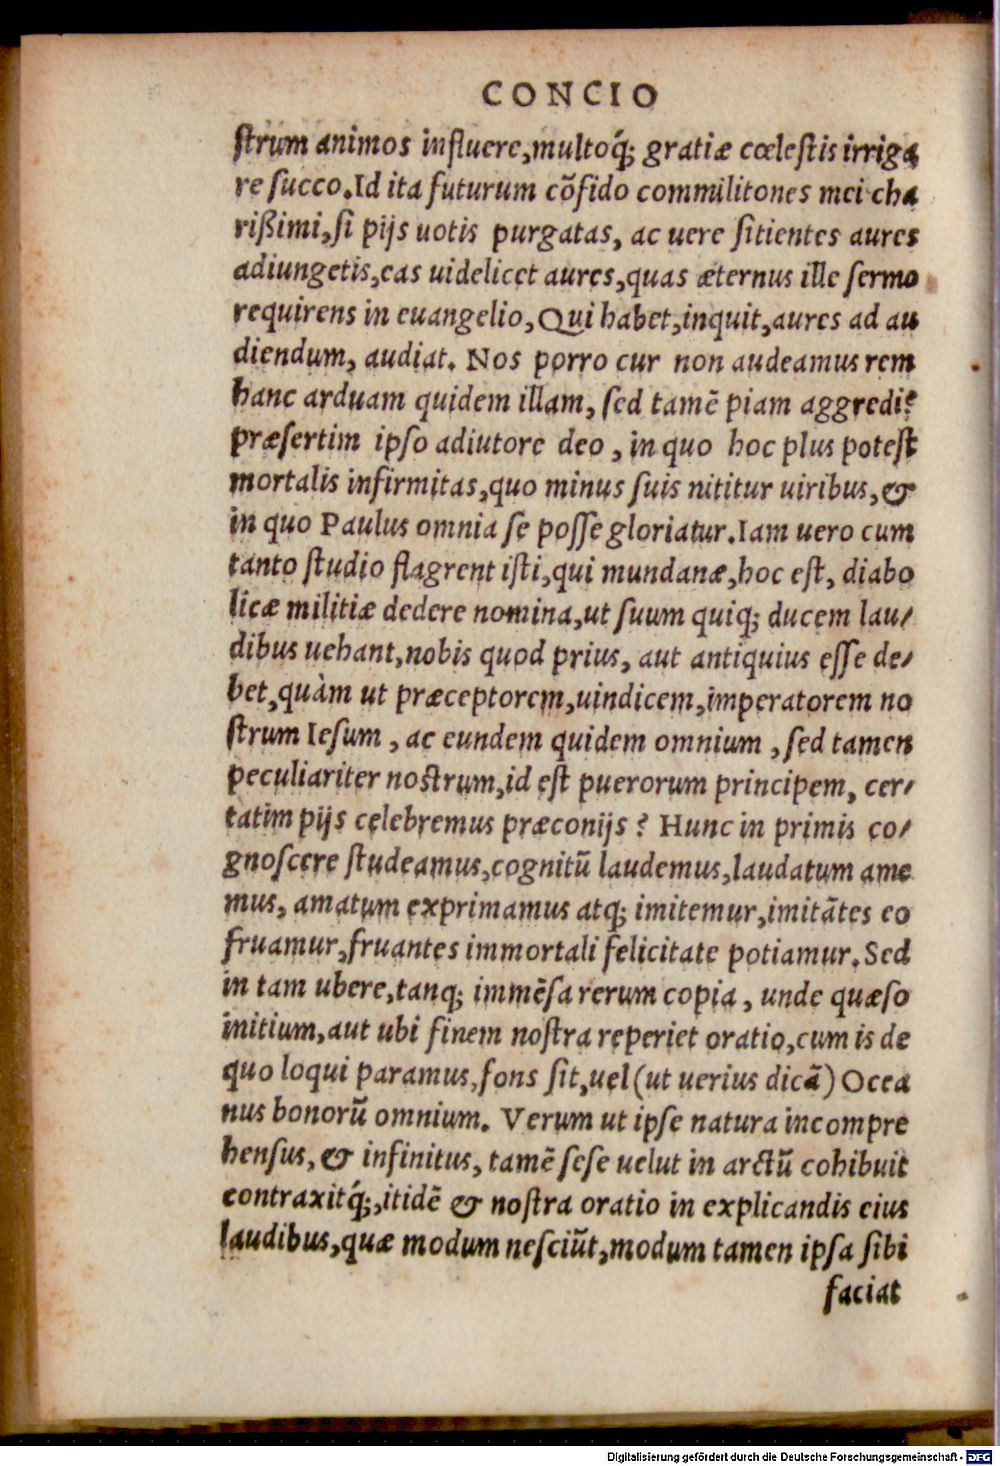 CONCIO
strum animos influere, multoq́; gratiæ cœlestis irriga
re succo. Id ita futurum cōfido commilitones mei cha
rißimi, si pijs uotis purgatas, ac uere sitientes aures
adiungetis, eas uidelicet aures, quas æternus ille sermo
requirens in euangelio, Qui habet, inquit, aures ad au
diendum, audiat. Nos porro cur non audeamus rem
hanc arduam quidem illam, sed tamē piam aggredi?
præsertim ipso adiutore deo, in quo hoc plus potest
mortalis infirmitas, quo minus suis nititur uiribus, &
in quo Paulus omnia se posse gloriatur. Iam uero cum
tanto studio flagrent isti, qui mundanæ, hoc est, diabo
licæ militiæ dedere nomina, ut suum quiq; ducem lau/
dibus uehant, nobis quod prius, aut antiquius esse de/
bet, quàm ut præceptorem, uindicem, imperatorem no
strum Iesum, ac eundem quidem omnium, sed tamen
peculiariter nostrum, id est puerorum principem, cer/
tatim pijs celebremus præconijs? Hunc in primis co/
gnoscere studeamus, cognitū laudemus, laudatum ame
mus, amatum exprimamus atq; imitemur, imitātes eo
fruamur, fruantes immortali felicitate potiamur. Sed
in tam ubere, tanq; immēsa rerum copia, unde quæso
initium, aut ubi finem nostra reperiet oratio, cum is de
quo loqui paramus, fons sit, uel (ut uerius dicā) Ocea
nus bonorū omnium. Verum ut ipse natura incompre
hensus, & infinitus, tamē sese uelut in arctū cohibuit
contraxitq́;, itidē & nostra oratio in explicandis eius
laudibus, quæ modum nesciūt, modum tamen ipsa sibi
faciat
Digitalisierung gefördert durch die Deutsche Forschungsgemeinschaft - DFG